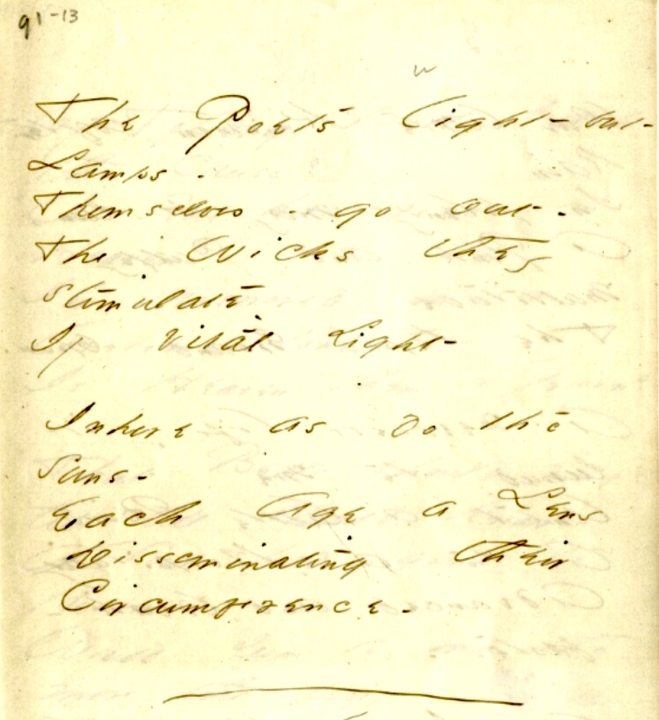 91-13
The Poets light - but
Lamps -
Themselves - go out -
The Wicks they
stimulate
If vital Light
Inhere as do the
Suns -
Each Age a Lens
Disseminating their
Circumference -